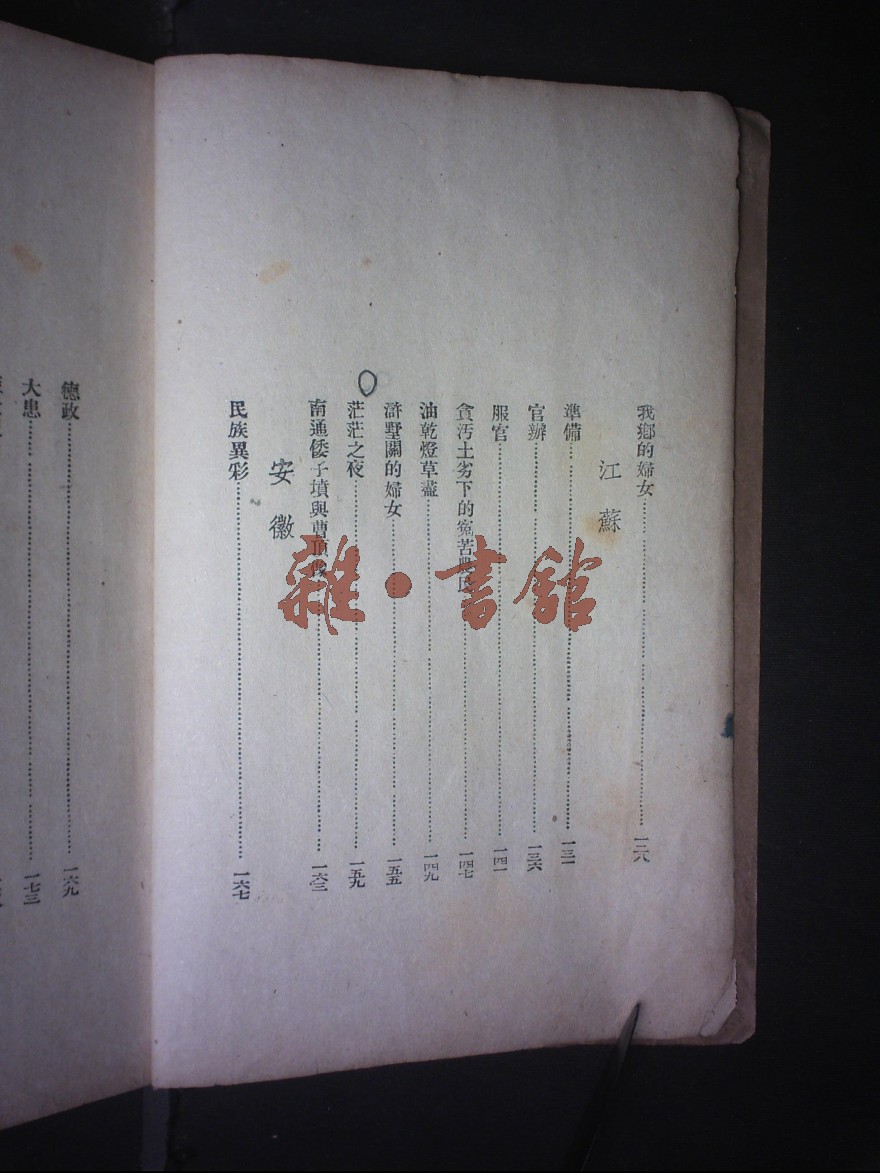 我鄉的婦女……一二八
江蘇
準備……一三一
官辦……一三六
服官……一四一
貪污土劣下的冤苦農民……一四七
油乾燈草盡……一四九
滸墅關的婦女……一五五
茫茫之夜……一五九
南通倭子墳與曹頂……一六三
安徽
民族異彩……一六七
德政……一六九
大患……一七三
雜·書館